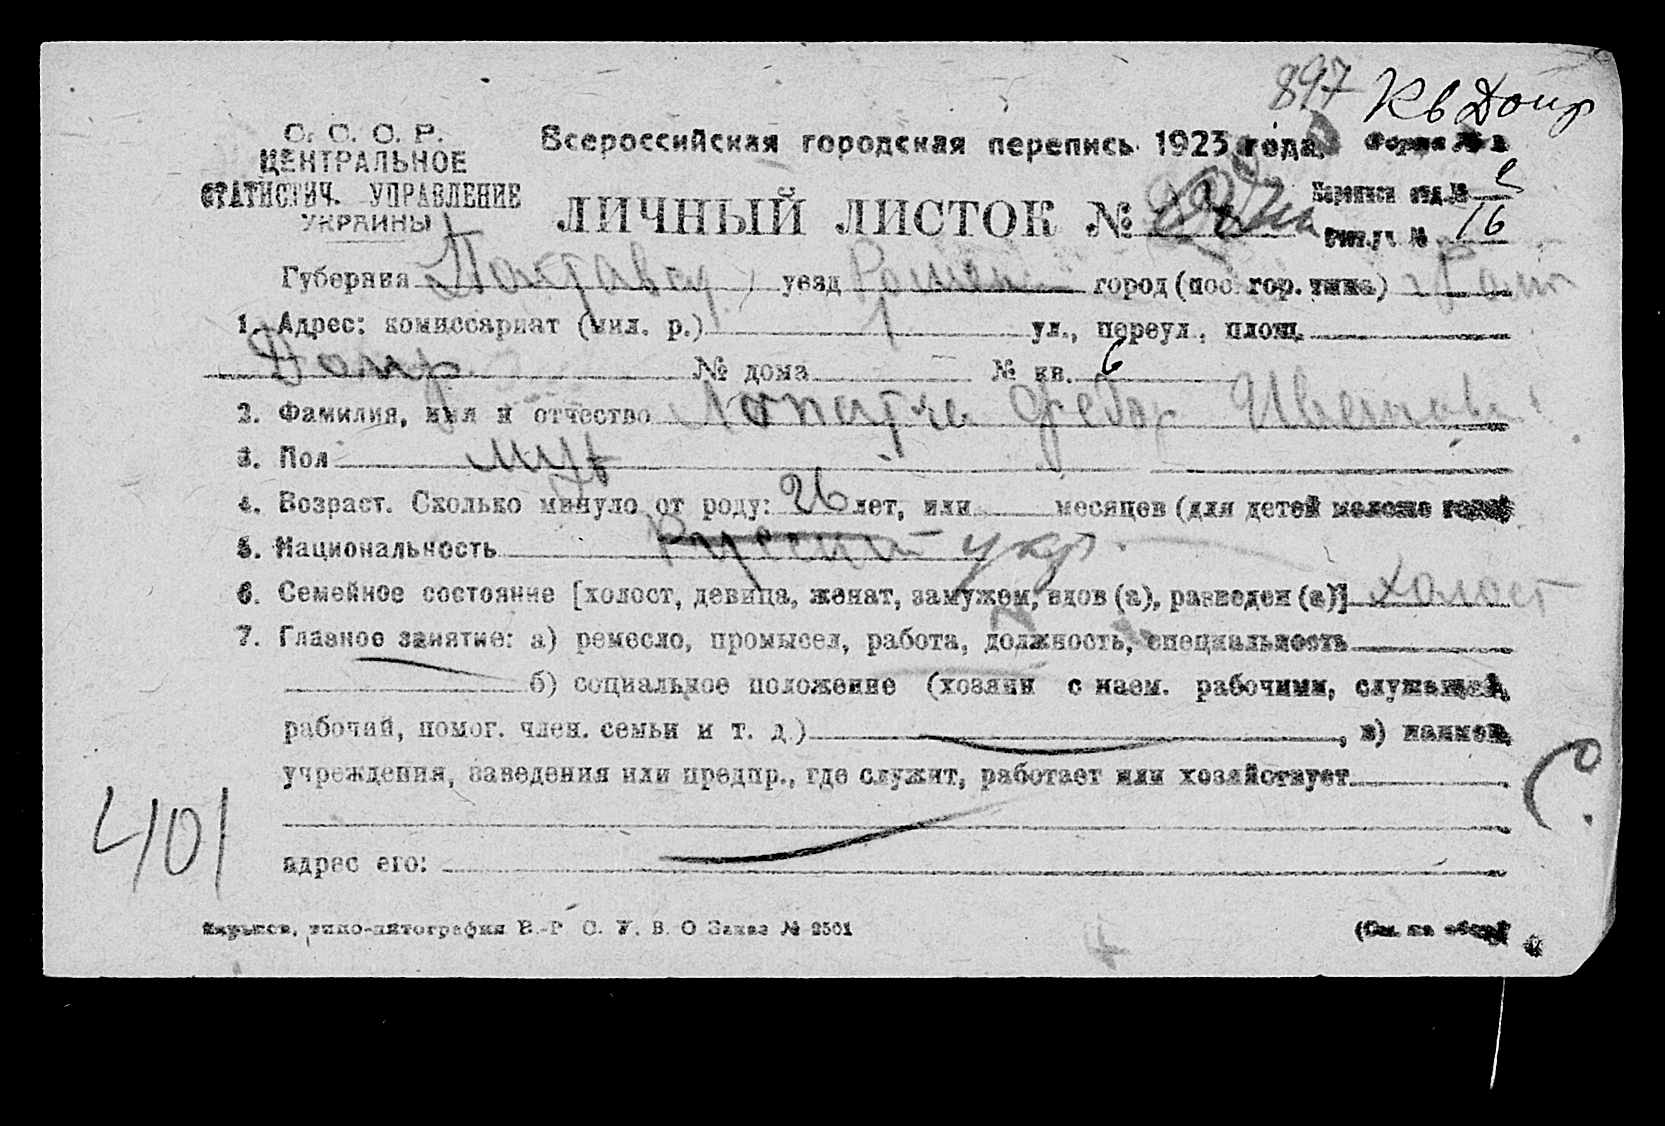 897 Кв Допр
С. С. С. Р.
ЦЕНТРАЛЬНОЕ
СТАТИСТИЧ. УПРАВЛЕНИЕ
УКРАИНЫ
Всероссийская городская перепись 1923 года.
Форма №
ЛИЧНЫЙ ЛИСТОК №
Переписи отд. №
Счет. уч. № 16
Губерния Полтавск уезд Ромен город (пос. гор. типа) г. Ромн
1. Адрес: комиссариат (мил. р.) 1 ул., переул., площ.
Допр № дома № кв. 6
2. Фамилия, имя и отчество Федор Иванов
3. Пол муж
4. Возраст. Сколько минуло от роду: 26 лет, или месяцев (для детей моложе года)
5. Национальность Русский укр.
6. Семейное состояние [холост, девица, женат, замужем, вдов (а), разведен (а)] холост
7. Главное занятие: а) ремесло, промысел, работа, должность, специальность
б) социальное положение (хозяин с наем. рабочими, служащий,
рабочий, помог. член. семьи и т. д.) , в) наимен.
учреждения, заведения или предпр., где служит, работает или хозяйствует
адрес его:
401
Харьков, типо-литография В.-Р. С. У. В. О Заказ № 2501
(См. на обор.)